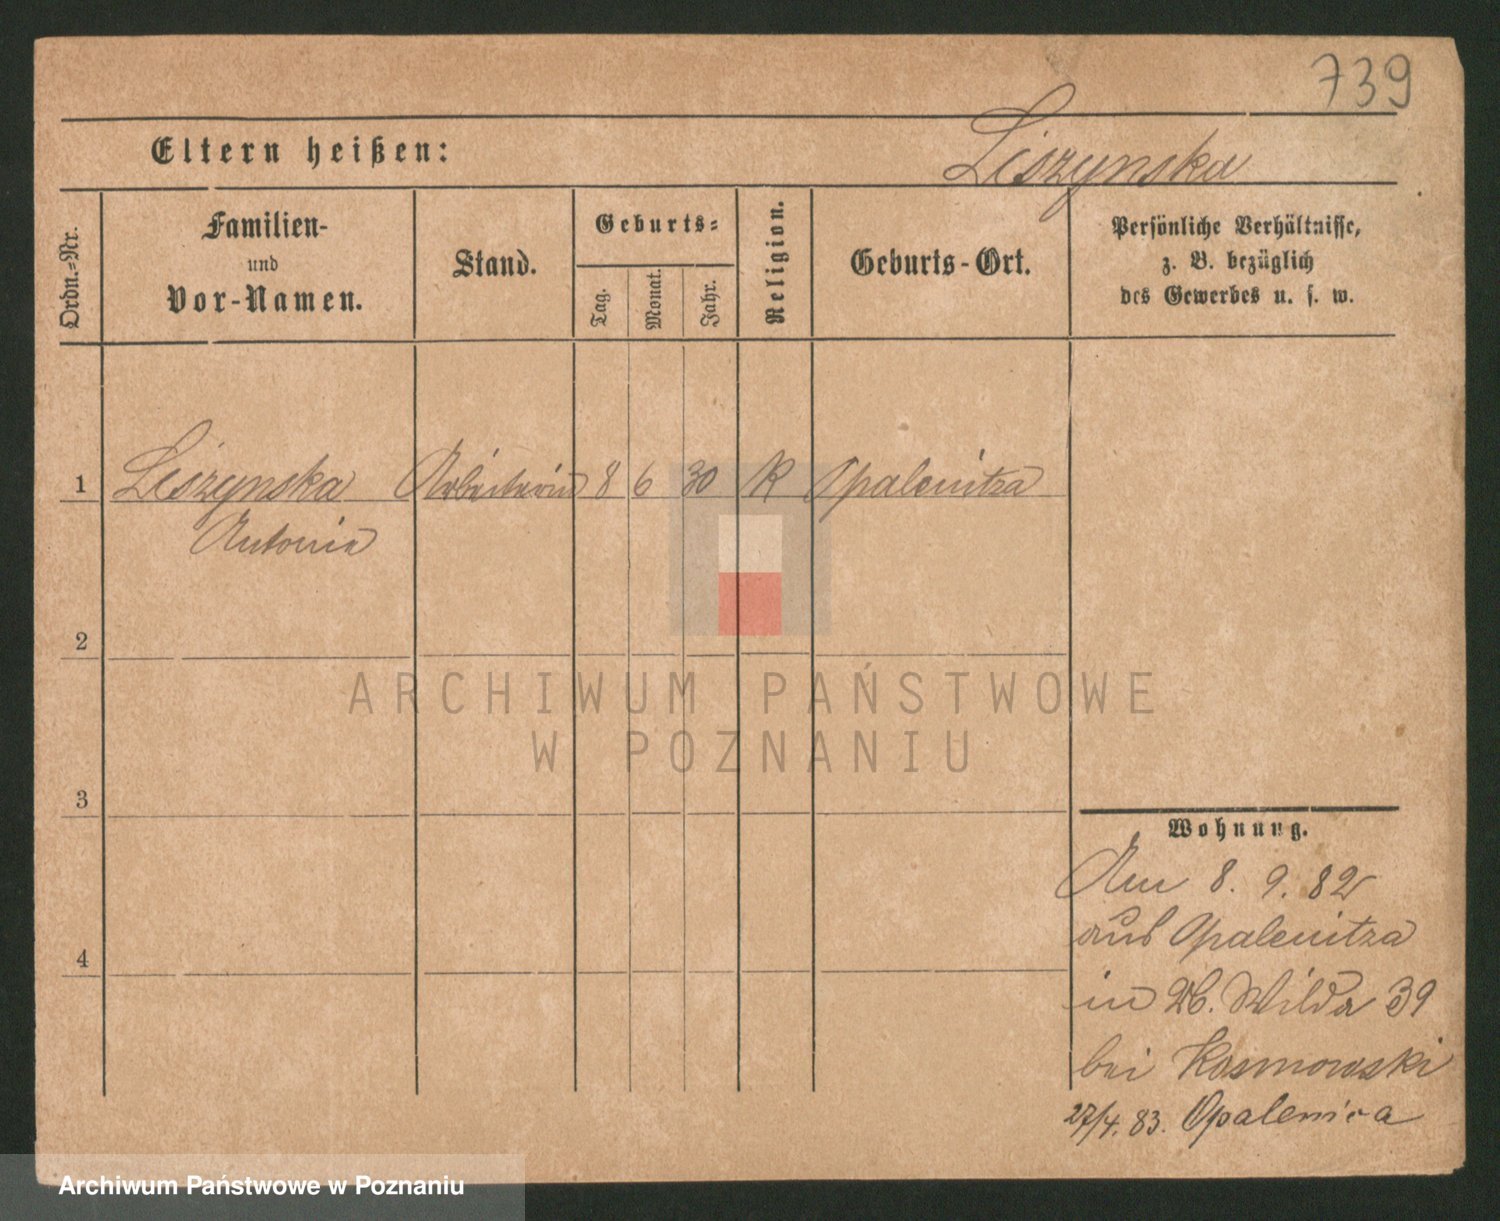 739
Eltern heißen:
Liszynska
Ordn.-Nr.
Familien-
und
Vor-Namen.
Stand.
Geburts-
Tag.
Monat.
Jahr.
Religion.
Geburts-Ort.
Persönliche Verhältnisse,
z. B. bezüglich
des Gewerbes u. s. w.
1 Liszynska Arbeiterin 8 6 30 K Opalenitza
Antonia
2
3
4
ARCHIWUM PAŃSTWOWE
W POZNANIU
Wohnung.
Am 8. 9. 82
aus Opalenitza
in Wilda 39
bei Kosmowski
27/4. 83. Opalenica
Archiwum Państwowe w Poznaniu